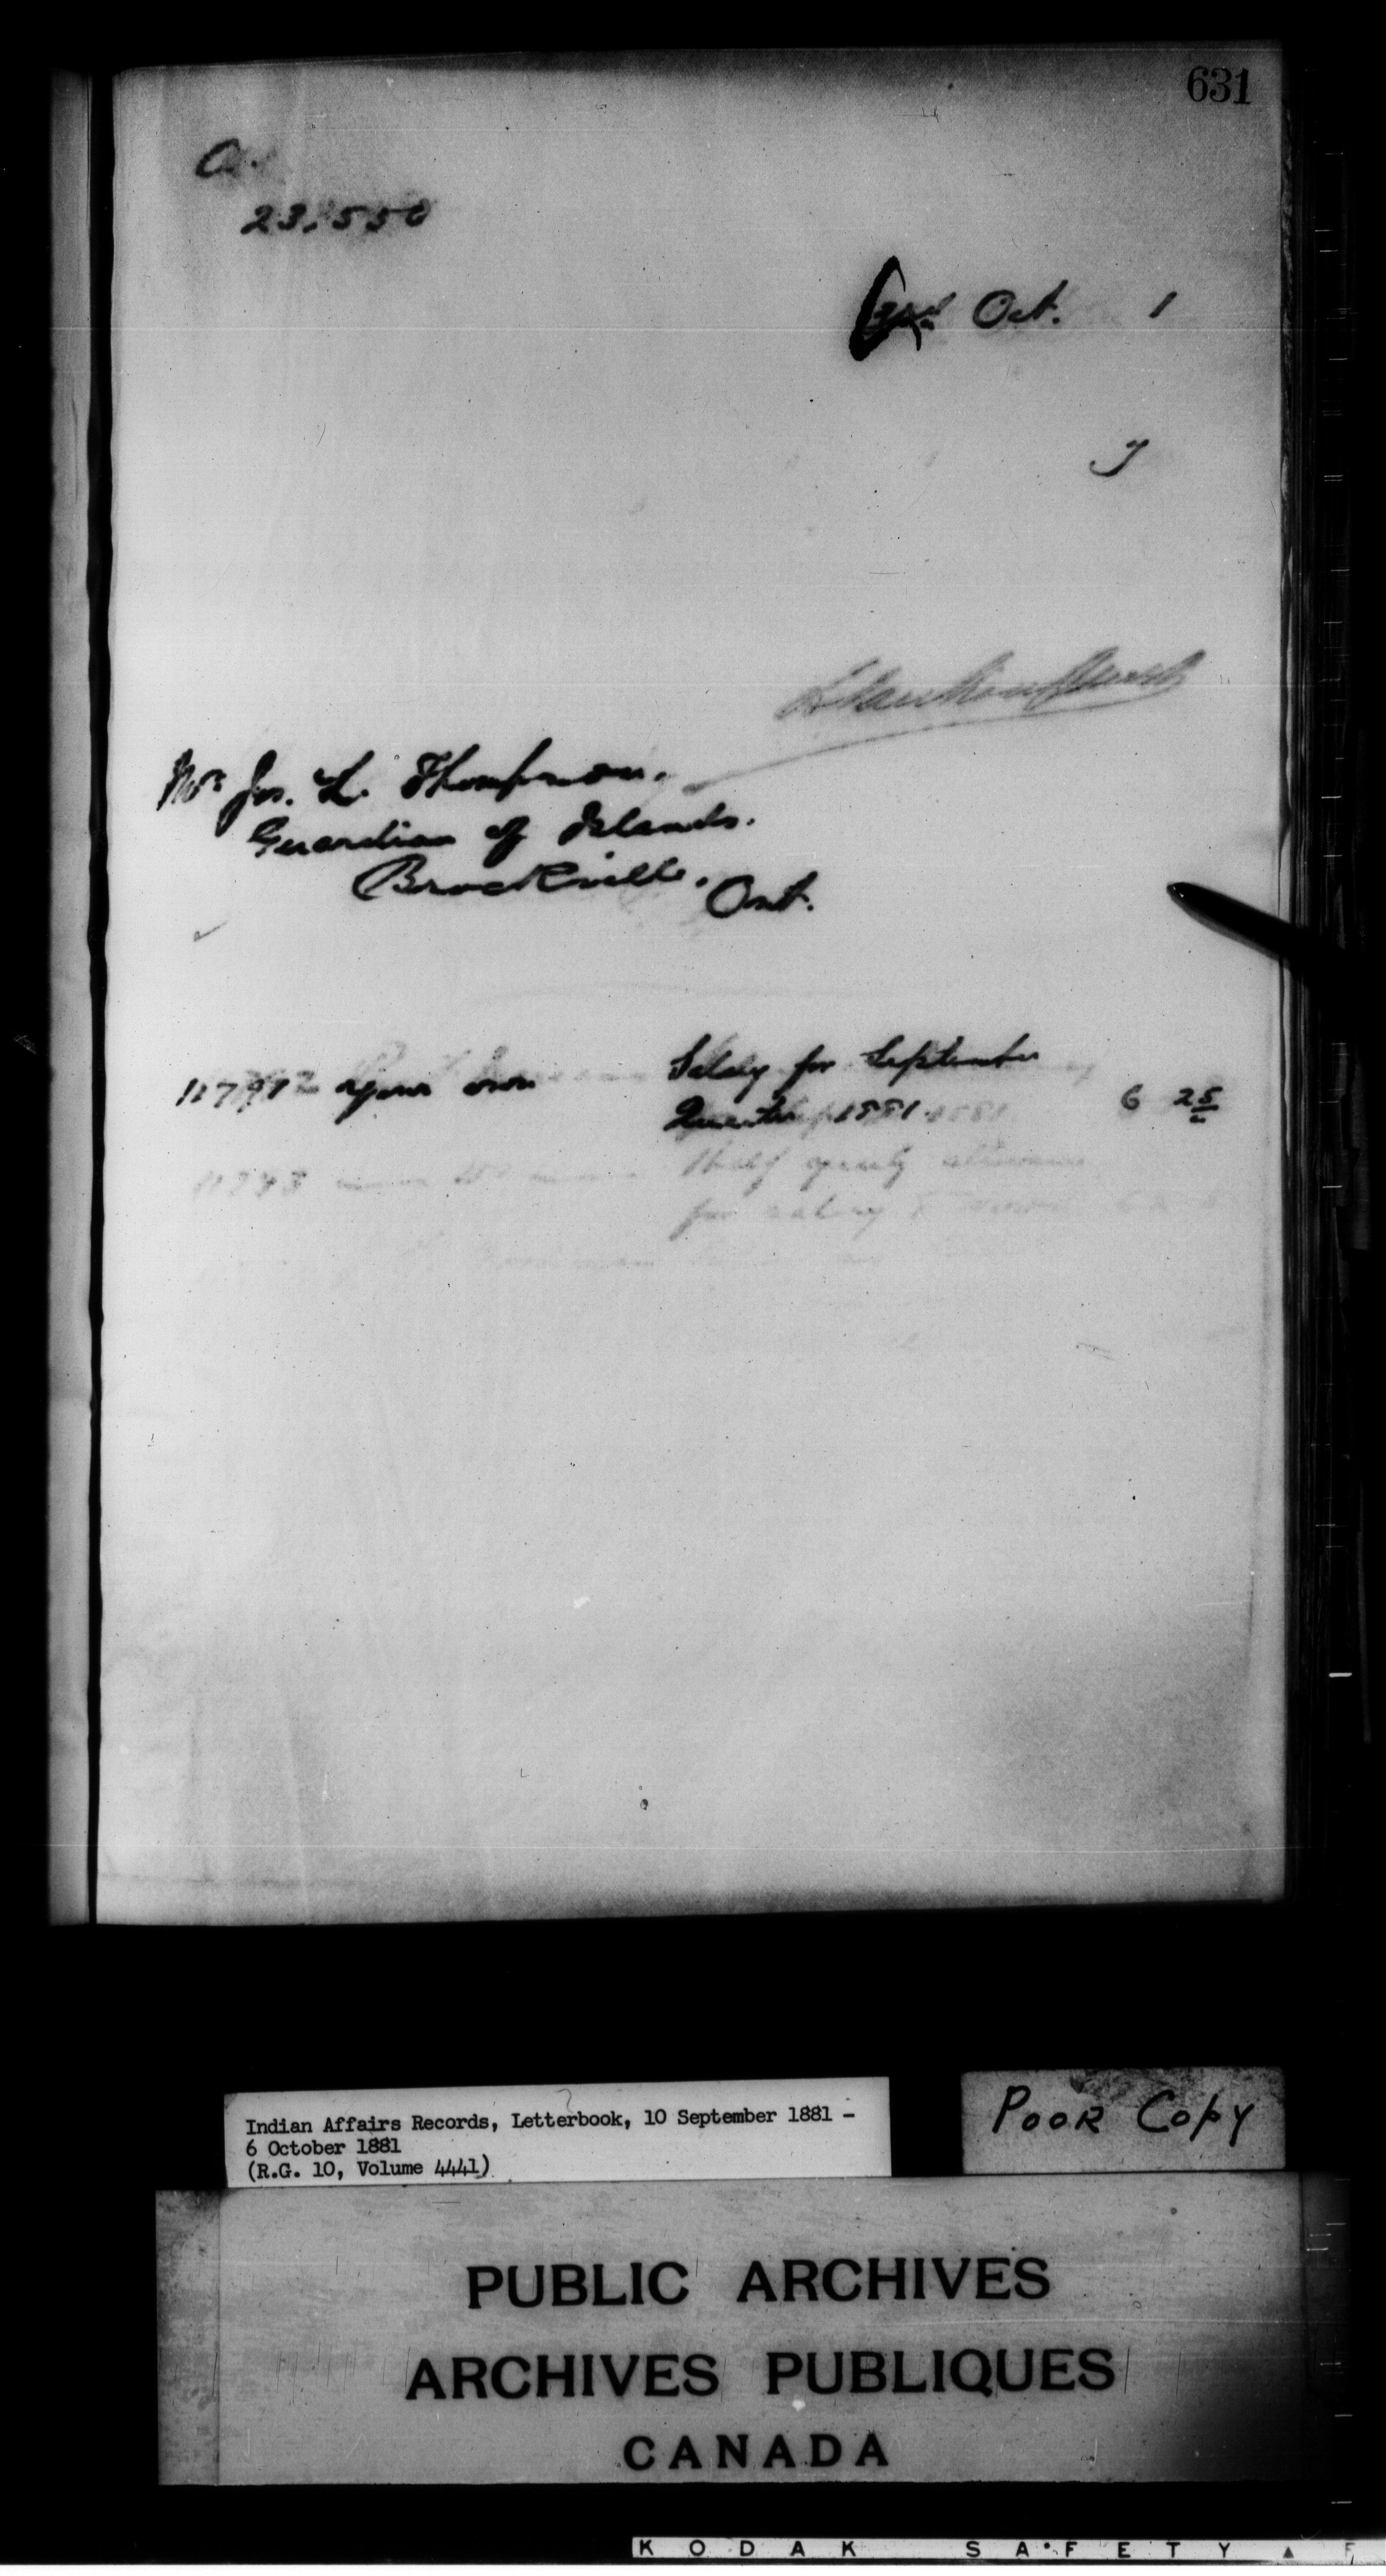 631
23.550
3rd Oct. 1
Mr Jos. L. Thompson.
Guardian of Islands.
Brockville. Ont.
your own Salary for September
Quarter 1881. 6 25
Half
for salary
Indian Affairs Records, Letterbook, 10 September 1881 -
6 October 1881
(R.G. 10, Volume 4441)
POOR COPY
PUBLIC ARCHIVES
ARCHIVES PUBLIQUES
CANADA
KODAK SAFETY